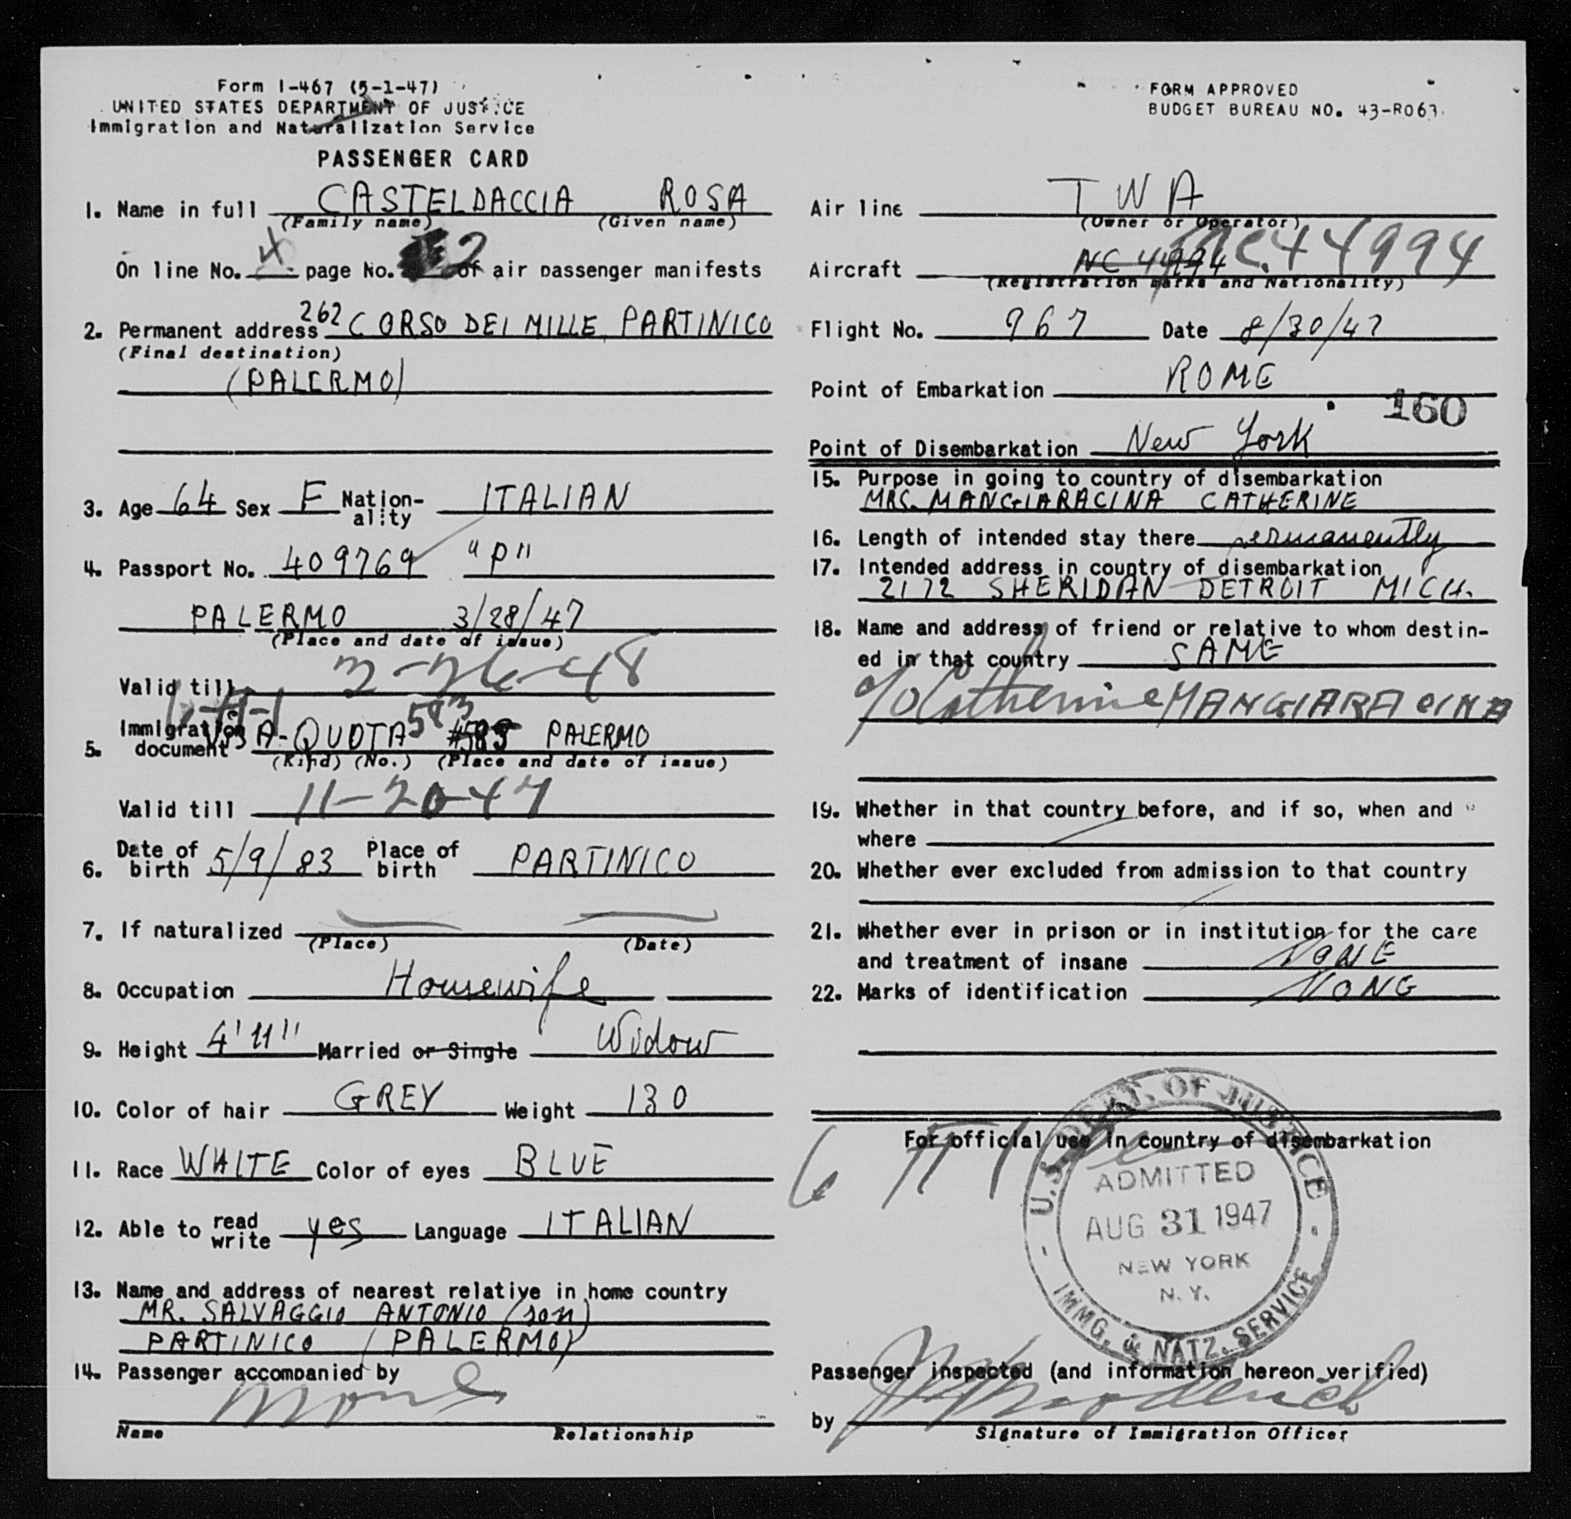 Form I-467 (5-1-47)
UNITED STATES DEPARTMENT OF JUSTICE
Immigration and Naturalization Service
PASSENGER CARD
FORM APPROVED
BUDGET BUREAU NO. 43-R063.
1. Name in full CASTELDACCIA ROSA
(Family name) (Given name)
On line No. 4 page No. 2 of air passenger manifests
2. Permanent address 262 CORSO DEI MILLE, PARTINICO
(Final destination)
(PALERMO)
3. Age 64 Sex F Nation-ality ITALIAN
4. Passport No. 409769 "P"
PALERMO 3/28/47
(Place and date of issue)
Valid till
5. Immigration document VISA-QUOTA 583 #585 PALERMO
(Kind) (No.) (Place and date of issue)
Valid till 11-20-47
6. Date of birth 5/9/83 Place of birth PARTINICO
7. If naturalized
(Place) (Date)
8. Occupation Housewife
9. Height 4'11" Married or Single Widow
10. Color of hair GREY Weight 130
11. Race WHITE Color of eyes BLUE
12. Able to read write yes Language ITALIAN
13. Name and address of nearest relative in home country
MR. SALVAGGIO ANTONIO (son)
PARTINICO (PALERMO)
14. Passenger accompanied by
None
Name Relationship
Air line TWA
(Owner or Operator)
Aircraft NC 4994 NC.44994
(Registration marks and Nationality)
Flight No. 967 Date 8/30/47
Point of Embarkation ROME
160
Point of Disembarkation New York
15. Purpose in going to country of disembarkation
MRS. MANGIARACINA CATHERINE
16. Length of intended stay there permanently
17. Intended address in country of disembarkation
2172 SHERIDAN - DETROIT MICH.
18. Name and address of friend or relative to whom destin-
ed in that country SAME
c/o Catherine MANGIARACINA
19. Whether in that country before, and if so, when and
where
20. Whether ever excluded from admission to that country
21. Whether ever in prison or in institution for the care
and treatment of insane NONE
22. Marks of identification NONE
For official use in country of disembarkation
U.S. DEPT. OF JUSTICE
ADMITTED
AUG 31 1947
NEW YORK
N.Y.
IMMG. & NATZ. SERVICE
Passenger inspected (and information hereon verified)
by
Signature of Immigration Officer